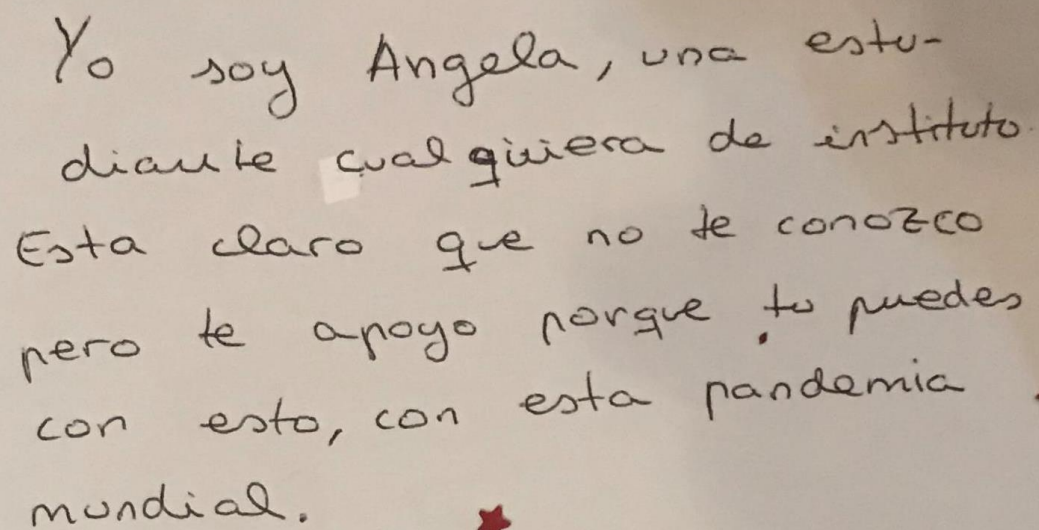 Yo soy Angela, una estu-
diante cualquiera de instituto.
Esta claro que no te conozco
pero te apoyo porque tu puedes
con esto, con esta pandemia
mundial.